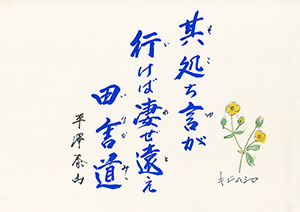 其処ち言が
行けば凄ぜ遠え
田舎道
平澤泰山
キジムシロ